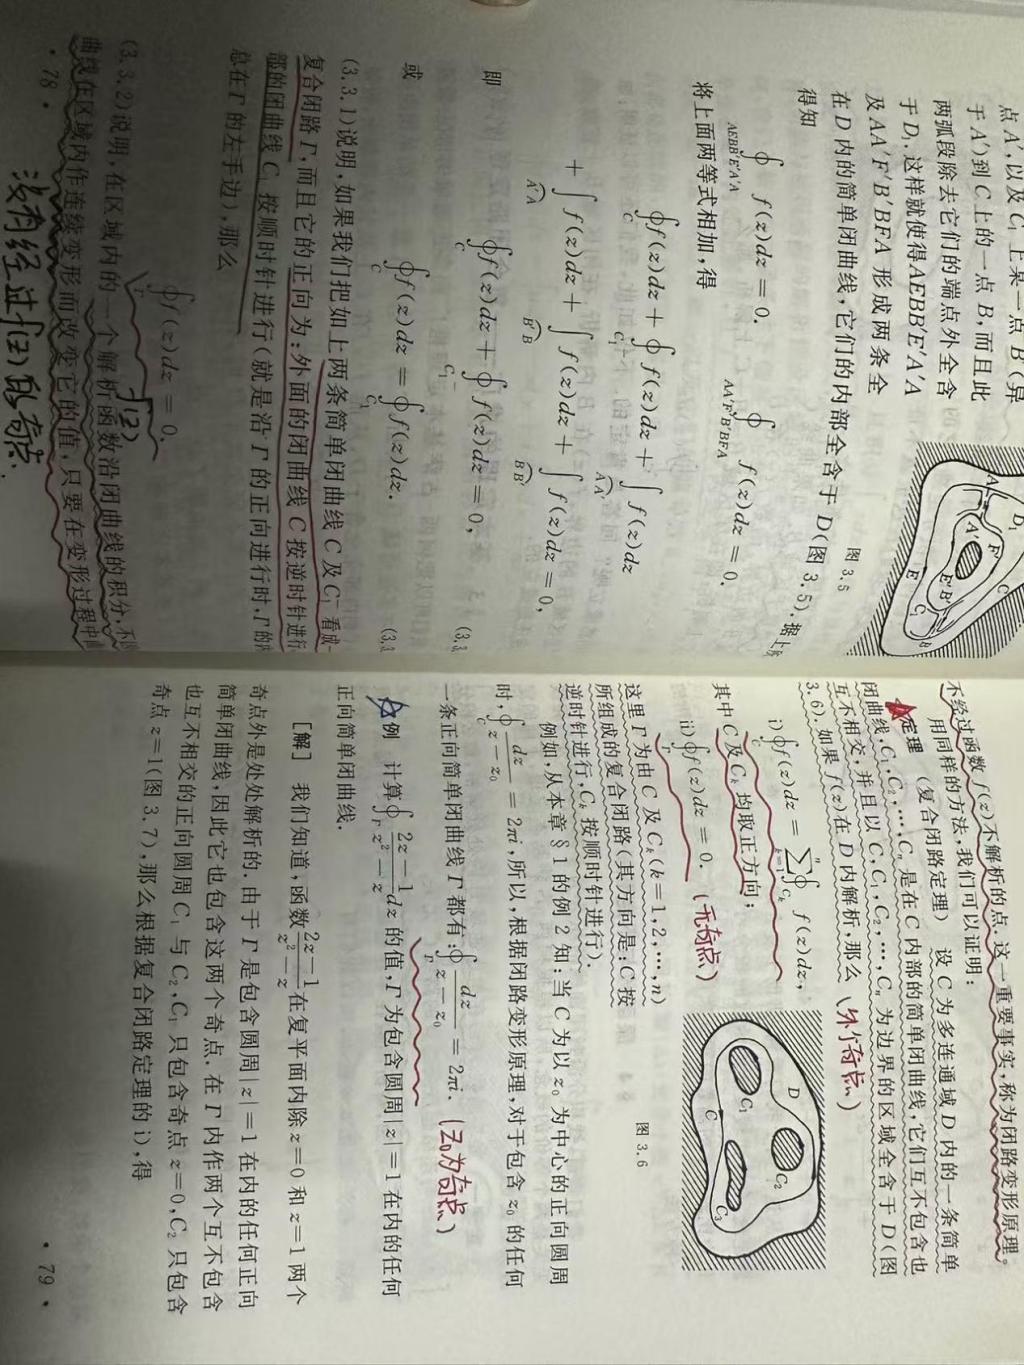 点 A′,以及 C₁ 上某一点 B′(异
于 A′)到 C 上的一点 B,而且此
两弧段除去它们的端点外全含
于 D₁. 这样就使得 AEBB′E′A′A
及 AA′F′B′BFA 形成两条全
在 D 内的简单闭曲线,它们的内部全含于 D(图 3.5).
得知
图 3.5
A
D₁
A′
F
F′
C
E
E′
B′
C₁
B
∮_{AEBB′E′A′A} f(z)dz = 0, ∮_{AA′F′B′BFA} f(z)dz = 0.
将上面两等式相加,得
∮_C f(z)dz + ∮_{C₁⁻} f(z)dz + ∫_{AA′} f(z)dz
+ ∫_{A′A} f(z)dz + ∫_{B′B} f(z)dz + ∫_{BB′} f(z)dz = 0,
即
∮_C f(z)dz + ∮_{C₁⁻} f(z)dz = 0, (3.3.
或
∮_C f(z)dz = ∮_{C₁} f(z)dz. (3.3
(3.3.1)说明,如果我们把如上两条简单闭曲线 C 及 C₁⁻ 看成一
复合闭路 Γ,而且它的正向为:外面的闭曲线 C 按逆时针进行
部的闭曲线 C₁ 按顺时针进行(就是沿 Γ 的正向进行时,Γ 的内
总在 Γ 的左手边),那么
∮_Γ f(z)dz = 0.
f(z)
(3.3.2)说明,在区域内的一个解析函数沿闭曲线的积分,不
曲线在区域内作连续变形而改变它的值,只要在变形过程中
· 78 ·
没有经过f(z)的奇点.
不经过函数 f(z)不解析的点. 这一重要事实,称为闭路变形原理.
用同样的方法,我们可以证明:
定理 (复合闭路定理) 设 C 为多连通域 D 内的一条简单
闭曲线,C₁,C₂,…,Cₙ 是在 C 内部的简单闭曲线,它们互不包含也
互不相交,并且以 C,C₁,C₂,…,Cₙ 为边界的区域全含于 D(图
3.6). 如果 f(z)在 D 内解析,那么 (外个奇点)
i) ∮_C f(z)dz = ∑_{k=1}^{n} ∮_{C_k} f(z)dz,
其中 C 及 C_k 均取正方向;
ii) ∮_Γ f(z)dz = 0. (无奇点)
这里 Γ 为由 C 及 C_k(k=1,2,…,n)
所组成的复合闭路(其方向是:C 按
逆时针进行,C_k 按顺时针进行).
D
C₁
C₂
C
C₃
图 3.6
例如,从本章 §1 的例 2 知:当 C 为以 z₀ 为中心的正向圆周
时,∮_C dz/(z−z₀) = 2πi,所以,根据闭路变形原理,对于包含 z₀ 的任何
一条正向简单闭曲线 Γ 都有:∮_Γ dz/(z−z₀) = 2πi. (z₀为奇点)
例 计算 ∮_Γ (2z−1)/(z²−z) dz 的值,Γ 为包含圆周|z|=1 在内的任何
正向简单闭曲线.
[解] 我们知道,函数 (2z−1)/(z²−z) 在复平面内除 z=0 和 z=1 两个
奇点外是处处解析的. 由于 Γ 是包含圆周|z|=1 在内的任何正向
简单闭曲线,因此它也包含这两个奇点. 在 Γ 内作两个互不包含
也互不相交的正向圆周 C₁ 与 C₂,C₁ 只包含奇点 z=0,C₂ 只包含
奇点 z=1(图 3.7),那么根据复合闭路定理的 i),得
· 79 ·